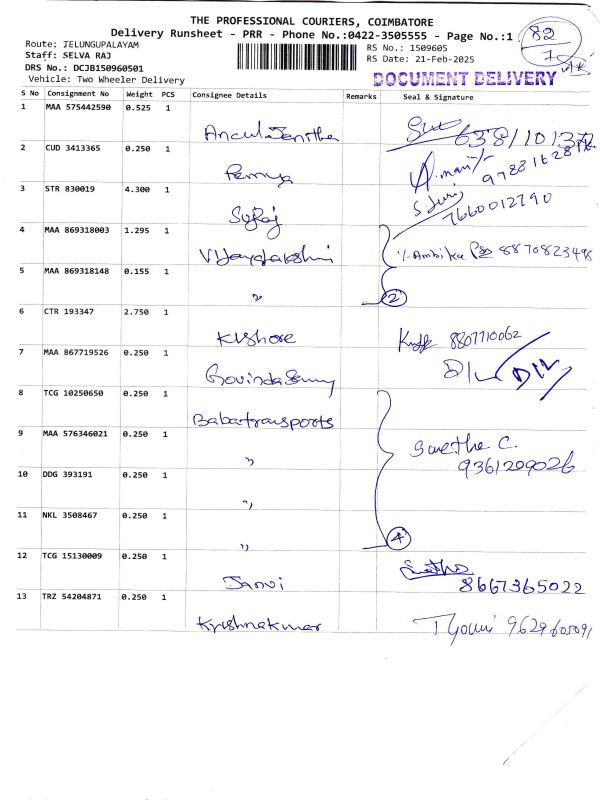 THE PROFESSIONAL COURIERS, COIMBATORE
Delivery Runsheet - PRR - Phone No.:0422-3505555 - Page No.:1
82
Route: TELUNGUPALAYAM
RS No.: 1509605
Staff: SELVA RAJ
RS Date: 21-Feb-2025
DRS No.: DCJB150960501
Vehicle: Two Wheeler Delivery
DOCUMENT DELIVERY
S No Consignment No Weight PCS Consignee Details Remarks Seal & Signature
1 MAA 575442590 0.525 1
2 CUD 3413365 0.250 1
Remya
3 STR 830019 4.300 1
Suraj 7660012790
4 MAA 869318003 1.295 1
Vijayalakshmi Ambika 8870823498
5 MAA 869318148 0.155 1
" 2
6 CTR 193347 2.750 1
Kishore 8807710062
7 MAA 867719526 0.250 1
Govindasamy D/L
8 TCG 10250650 0.250 1
Babatransports
9 MAA 576346021 0.250 1
" Swetha C.
9361209026
10 DDG 393191 0.250 1
"
11 NKL 3508467 0.250 1
" 4
12 TCG 15130009 0.250 1
Janvi 8667365022
13 TRZ 54204871 0.250 1
Krishnakumar